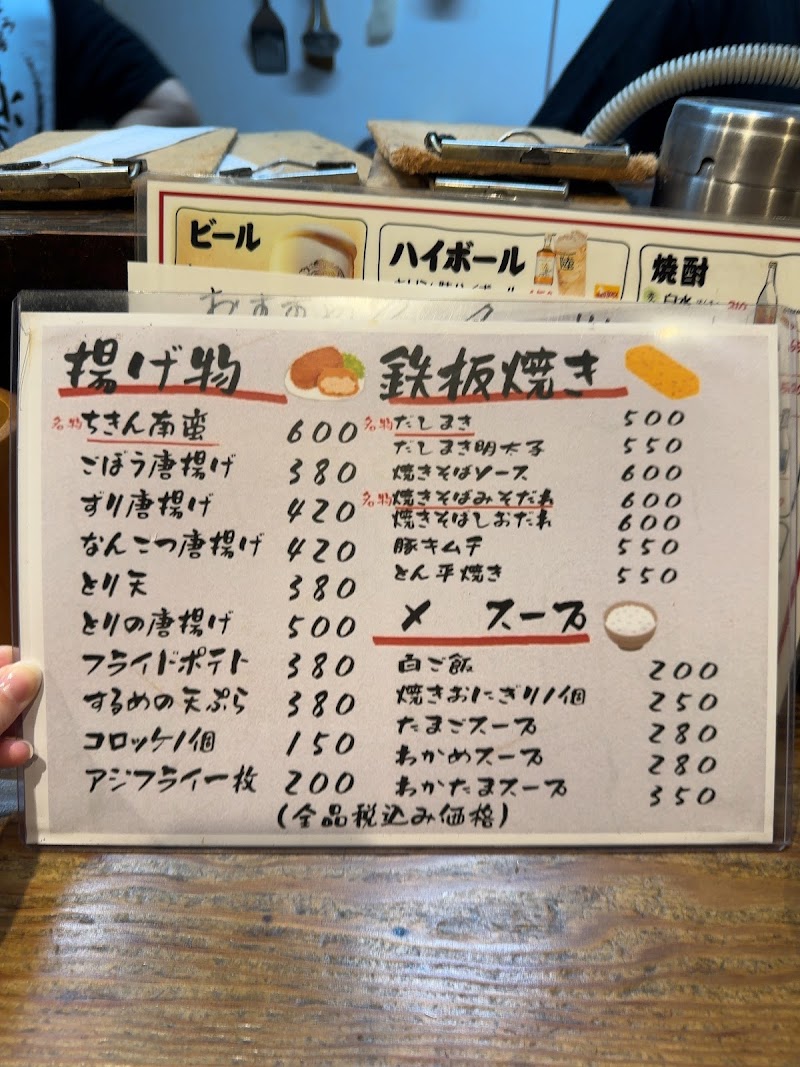 ビール
ハイボール
焼酎
揚げ物
名物 ちきん南蛮 600
ごぼう唐揚げ 380
ずり唐揚げ 420
なんこつ唐揚げ 420
とり天 380
とりの唐揚げ 500
フライドポテト 380
するめの天ぷら 380
コロッケ1個 150
アジフライ一枚 200
鉄板焼き
名物 だしまき 500
だしまき明太子 550
焼きそばソース 600
名物 焼きそばみそだれ 600
焼きそばしおだれ 600
豚キムチ 550
とん平焼き 550
〆 スープ
白ご飯 200
焼きおにぎり1個 250
たまごスープ 280
わかめスープ 280
わかたまスープ 350
(全品税込み価格)